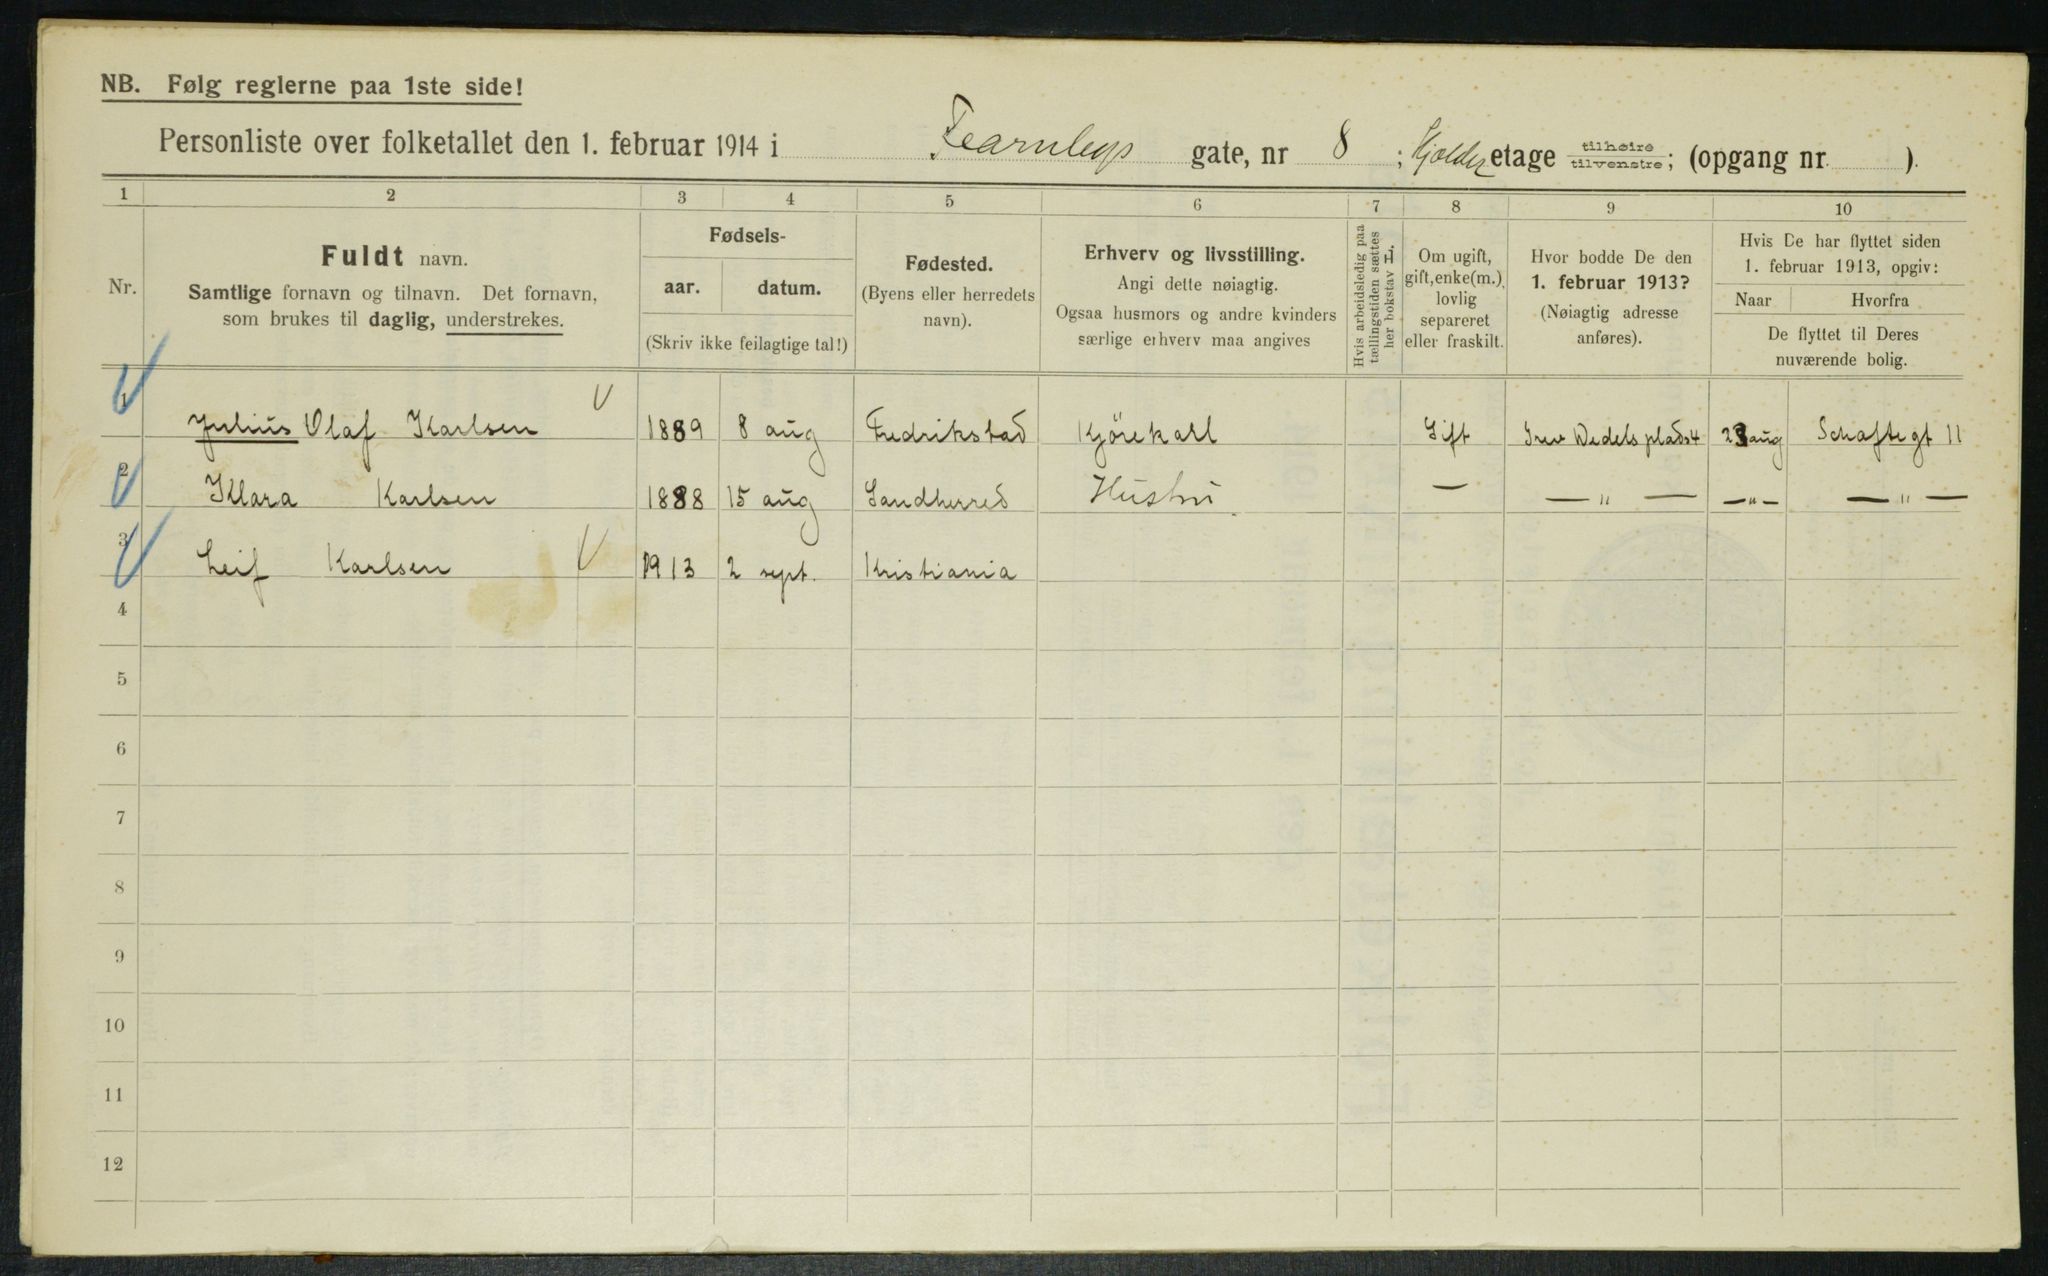 NB. Følg reglerne paa 1ste side!
Personliste over folketallet den 1. februar 1914 i Fearnleys gate, nr 8 ; Kjelder etage tilhøire tilvenstre; (opgang nr. ).
1 2 3 4 5 6 7 8 9 10
Nr.
Fuldt navn.
Samtlige fornavn og tilnavn. Det fornavn,
som brukes til daglig, understrekes.
Fødsels-
aar. datum.
(Skriv ikke feilagtige tal!)
Fødested.
(Byens eller herredets
navn).
Erhverv og livsstilling.
Angi dette nøiagtig.
Ogsaa husmors og andre kvinders
særlige erhverv maa angives
Hvis arbeidsledig paa
tællingstiden sættes
her bokstav L.
Om ugift,
gift, enke(m.),
lovlig
separeret
eller fraskilt.
Hvor bodde De den
1. februar 1913?
(Nøiagtig adresse
anføres).
Hvis De har flyttet siden
1. februar 1913, opgiv:
Naar Hvorfra
De flyttet til Deres
nuværende bolig.
1 Julius Olaf Karlsen 1889 8 aug Fredrikstad Kjörekarl Gift Grev Wedels plads 4 23 aug Schaftegt 11
2 Klara Karlsen 1888 15 aug Sandherred Hustru — — " — — " — — " —
3 Leif Karlsen 1913 2 sept. Kristiania
4
5
6
7
8
9
10
11
12